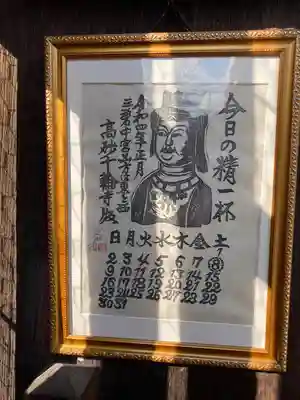 今日の精一杯
令和四年正月
高妙千龍寺版
日月火水木金土
1
2 3 4 5 6 7 8
9 10 11 12 13 14 15
16 17 18 19 20 21 22
23 24 25 26 27 28 29
30 31